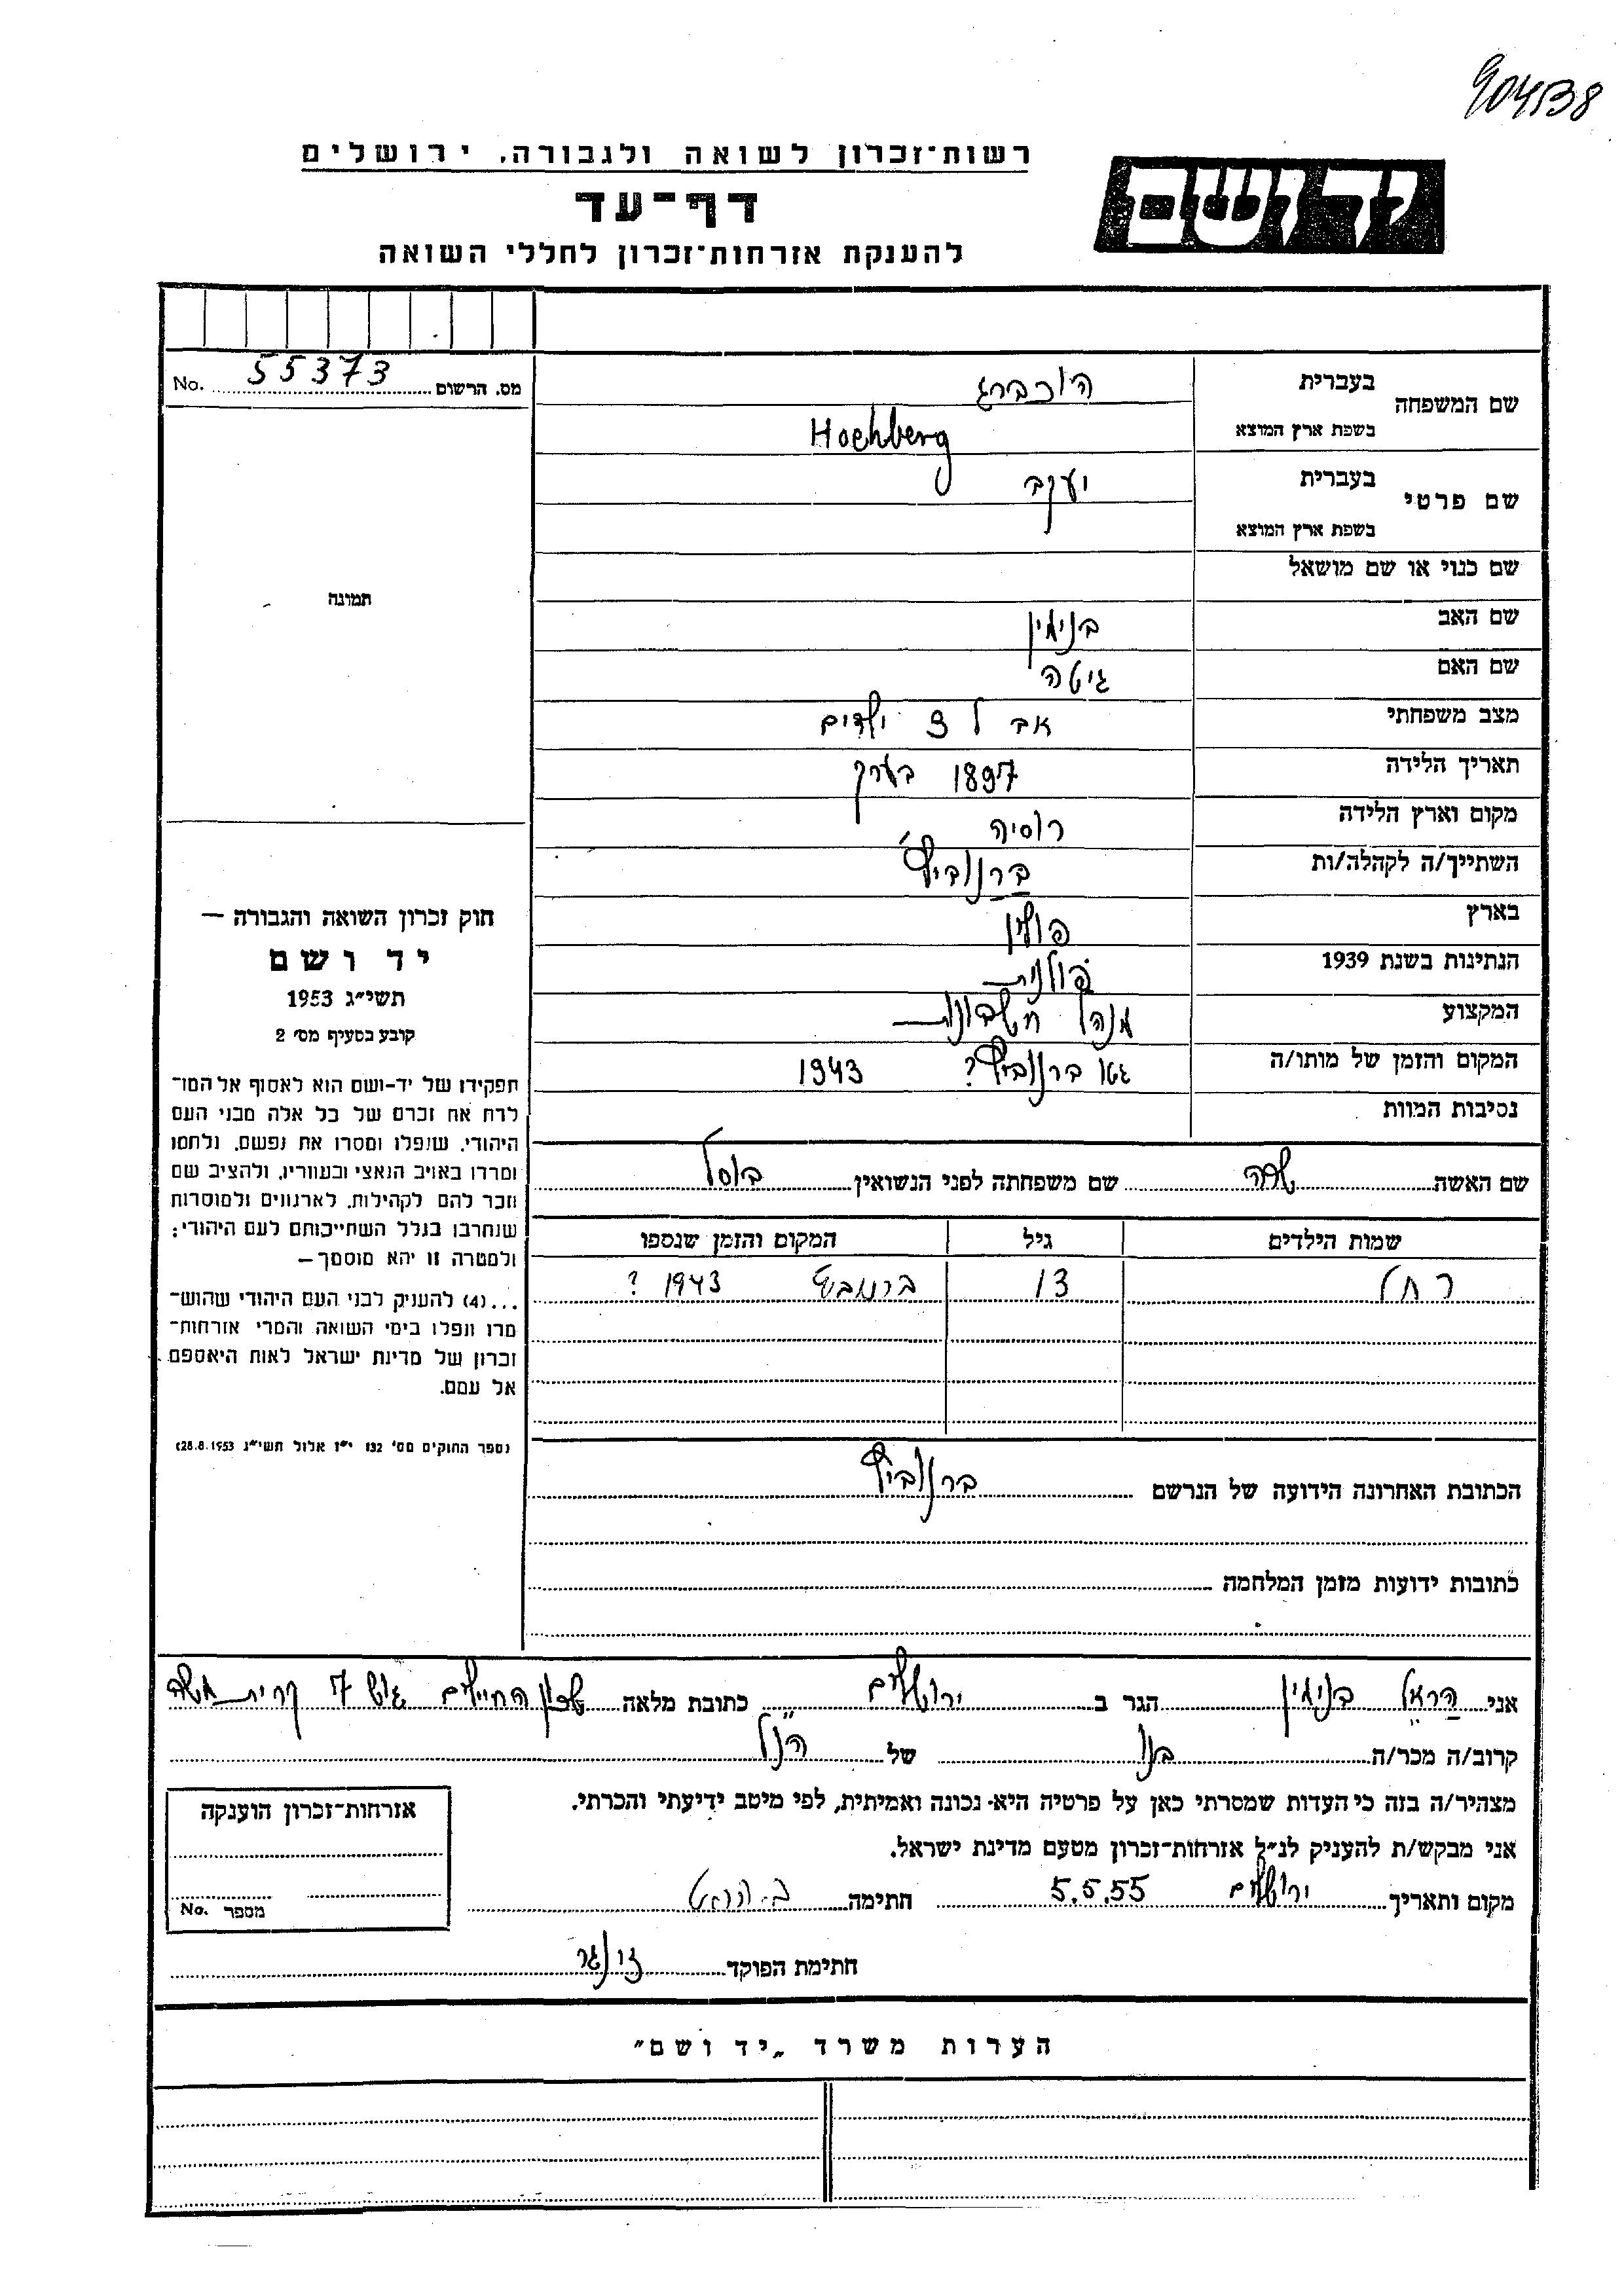 904538
רשות-זכרון לשואה ולגבורה, ירושלים
יד ושם
דף-עד
להענקת אזרחות-זכרון לחללי השואה
No. 55373 מס. הרשום
שם המשפחה בעברית הוכברג
בשפת ארץ המוצא Hochberg
שם פרטי בעברית יעקב
בשפת ארץ המוצא
שם כנוי או שם מושאל
שם האב בנימין
שם האם גיטה
מצב משפחתי אב ל 3 ילדים
תאריך הלידה 1897 בערך
מקום וארץ הלידה רוסיה
השתייך/ה לקהלה/ות ברנוביץ'
בארץ פולין
הנתינות בשנת 1939 פולנית
המקצוע מנהל חשבונות
המקום והזמן של מותו/ה גטו ברנוביץ? 1943
נסיבות המוות
תמונה
חוק זכרון השואה והגבורה —
יד ושם
תשי"ג 1953
קובע בסעיף מס' 2
תפקידו של יד-ושם הוא לאסוף אל המו-
לדת את זכרם של כל אלה מבני העם
היהודי, שנפלו ומסרו את נפשם, נלחמו
ומרדו באויב הנאצי ובעוזריו, ולהציב שם
וזכר להם לקהילות, לארגונים ולמוסדות
שנחרבו בגלל השתייכותם לעם היהודי;
ולמטרה זו יהא מוסמך —
...(4) להעניק לבני העם היהודי שהוש-
מדו ונפלו בימי השואה והמרי אזרחות-
זכרון של מדינת ישראל לאות היאספם
אל עמם.
(ספר החוקים מס' 132 י"ז אלול תשי"ג 28.8.1953)
שם האשה שרה שם משפחתה לפני הנשואין בוסל
שמות הילדים גיל המקום והזמן שנספו
רחל 13 ברנוביץ 1943 ?
הכתובת האחרונה הידועה של הנרשם ברנוביץ
כתובות ידועות מזמן המלחמה
אני הראל בנימין הגר ב ירושלים כתובת מלאה שכון החיילים גוש 7 קרית משה
קרוב/ה מכר/ה בנו של הנ"ל
מצהיר/ה בזה כי העדות שמסרתי כאן על פרטיה היא נכונה ואמיתית, לפי מיטב ידיעתי והכרתי.
אני מבקש/ת להעניק לנ"ל אזרחות-זכרון מטעם מדינת ישראל.
מקום ותאריך ירושלים 5.5.55 חתימה
חתימת הפוקד
אזרחות-זכרון הוענקה
No. מספר
הערות משרד „יד ושם"